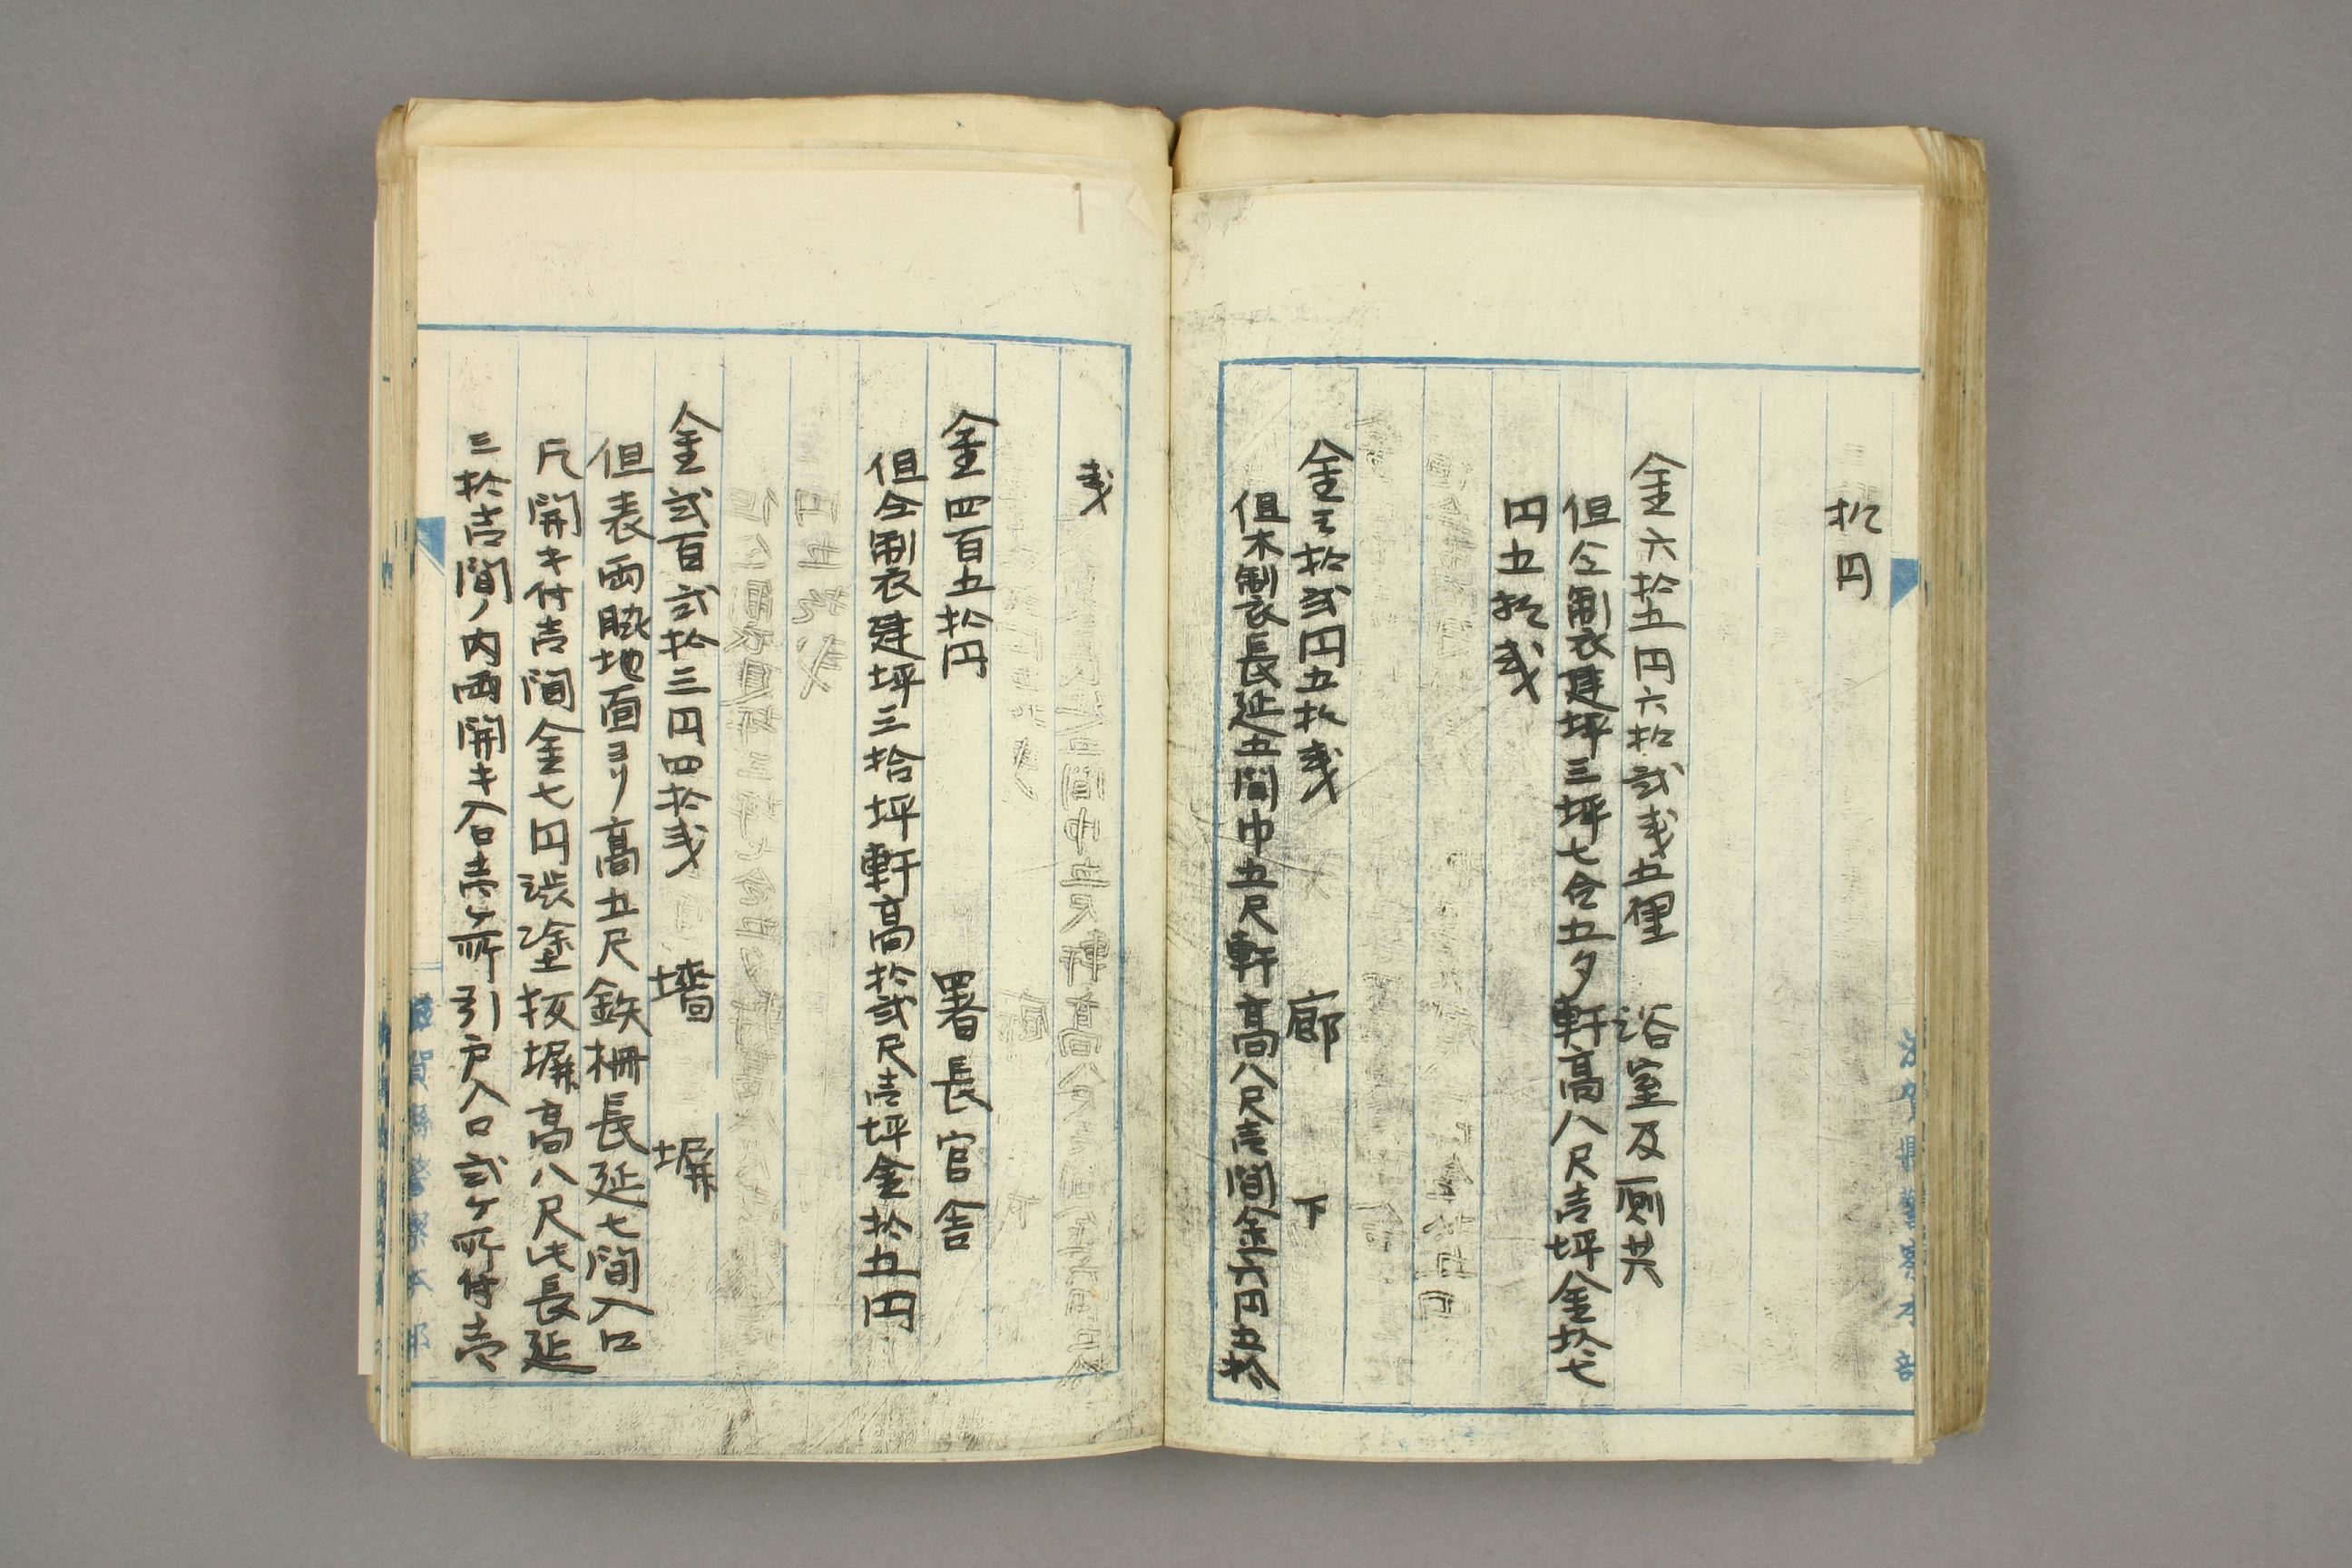 拾円
金六拾五円六拾弐戔五厘　浴室及厠共
但仝制衣建坪三坪七合五夕軒高八尺壱坪金拾七
円五拾戔
金三拾弐円五拾戔　廊下
但木制衣長延五間巾五尺軒高八尺壱間金六円五拾
戔
金四百五拾円　署長官舎
但仝制衣建坪三拾坪軒高拾弐尺壱坪金拾五円
金弐百弐拾三円四拾戔　墻塀
但表両脇地面ヨリ高五尺鉄柵長延七間入口
尺開キ付壱間金七円渋塗板塀高八尺此長延
三拾壱間ノ内両開キ入口壱ヶ所引戸入口弐ヶ所付壱
滋賀縣警察本部